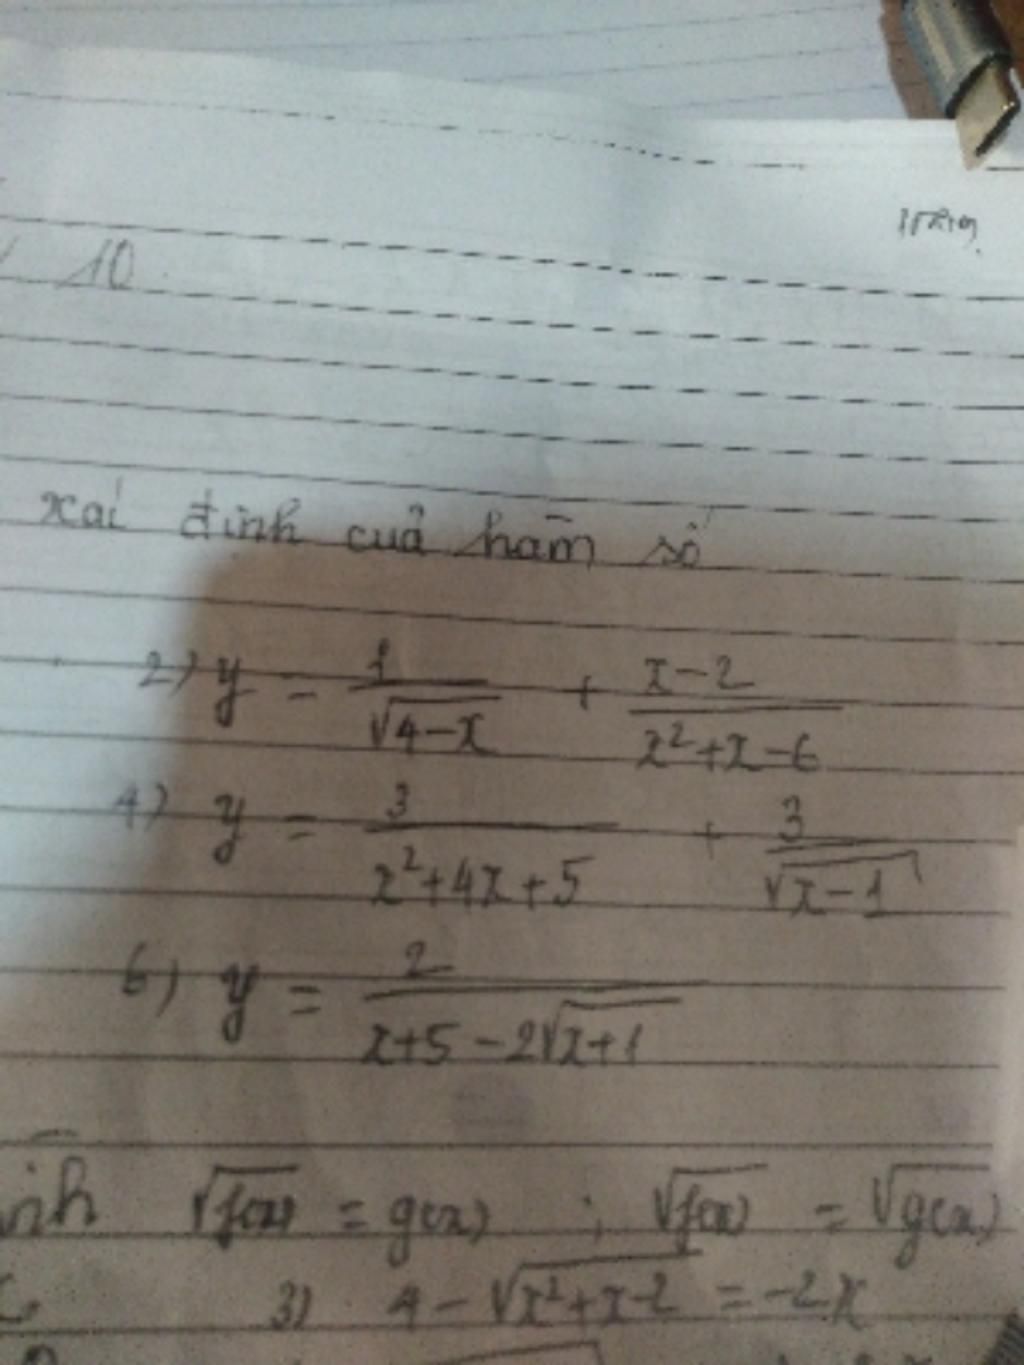 10
xác định của hàm số
2) y = 1/√(4-x) + (x-2)/(x²+x-6)
4) y = 3/(x²+4x+5) + 3/√(x-1)
6) y = 2/(x+5-2√(x+1))
√f(x) = g(x) ; √f(x) = √g(x)
3) 4 - √(x²+x-2) = -2x